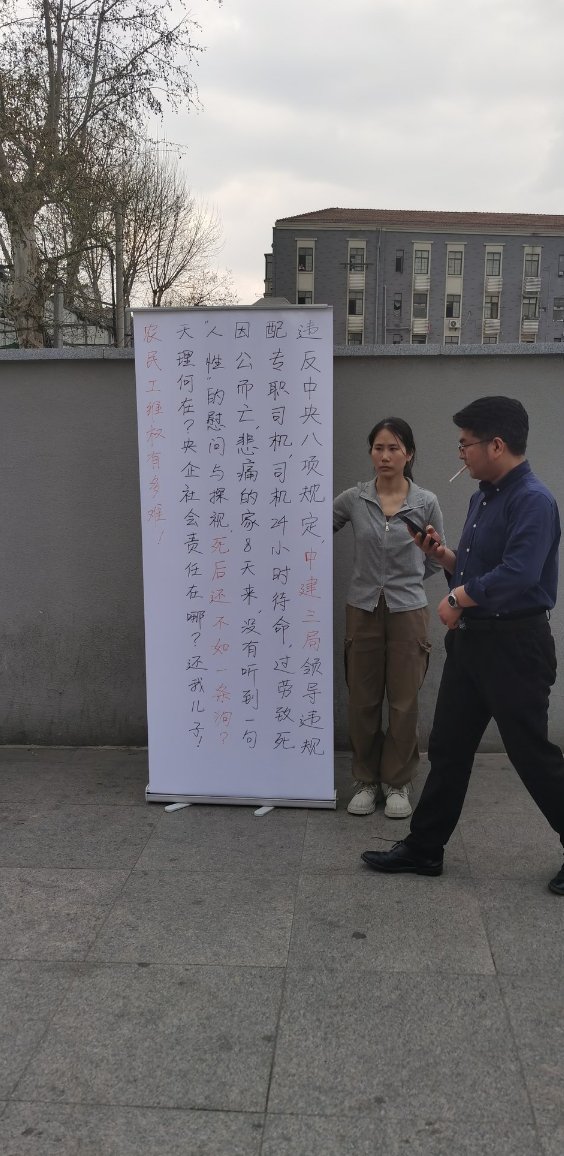 违反中央八项规定，中建三局领导违规
配专职司机，司机24小时待命，过劳致死
因公而亡，悲痛的家8天来，没有听到一句
“人性”的慰问与探视，死后还不如一条狗？
天理何在？央企社会责任在哪？还我儿子！
农民工维权有多难！